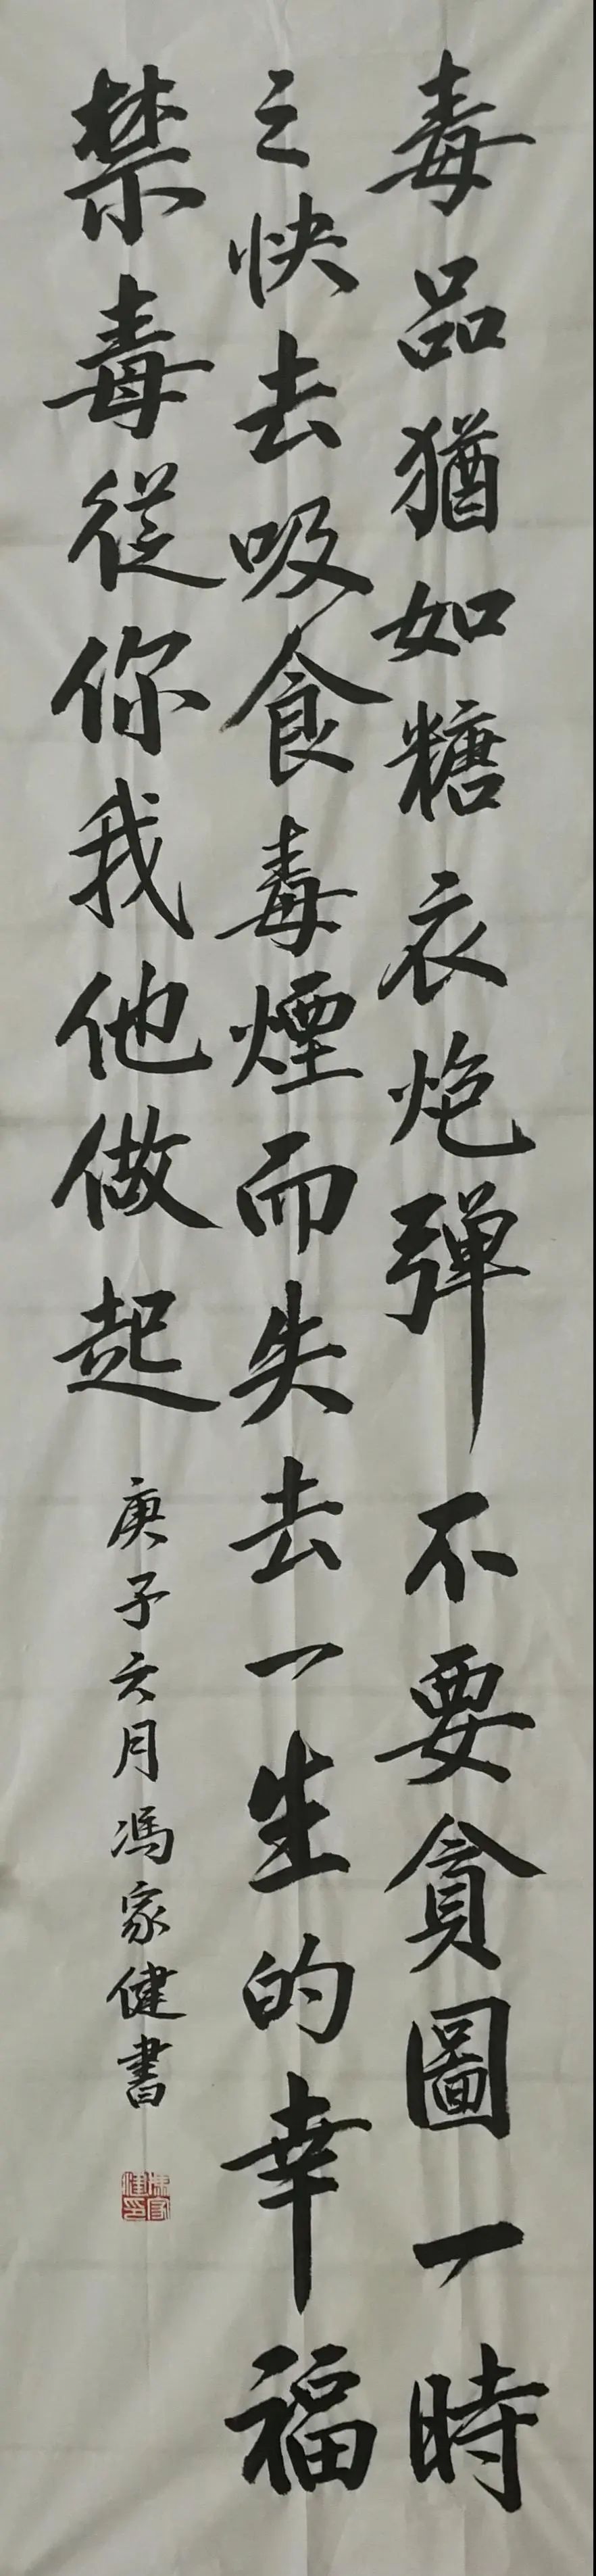 毒品猶如糖衣炮彈不要貪圖一時
之快去吸食毒煙而失去一生的幸福
禁毒從你我他做起
庚子六月馮家健書